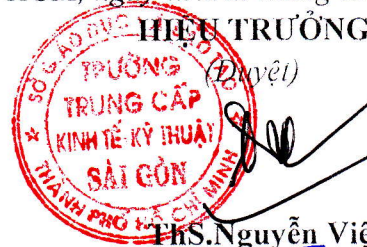 HIỆU TRƯỞNG
(Duyệt)
SỞ GIÁO DỤC VÀ ĐÀO TẠO
TRƯỜNG
TRUNG CẤP
KINH TẾ-KỸ THUẬT
SÀI GÒN
THÀNH PHỐ HỒ CHÍ MINH
ThS.Nguyễn Việ